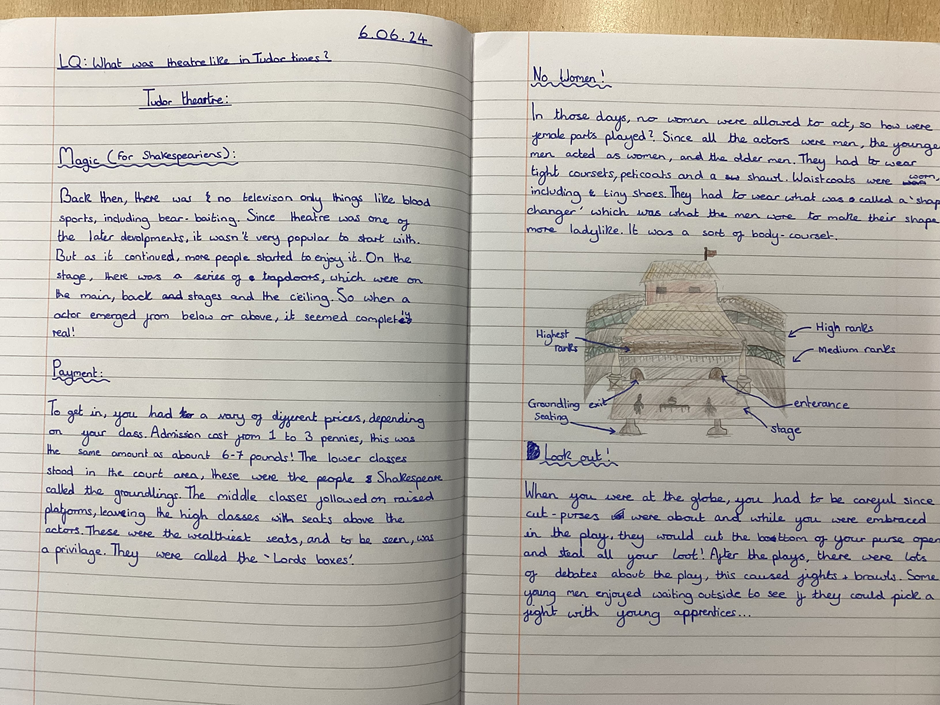 6.06.24
LQ: What was theatre like in Tudor times?
Tudor theartre:
Magic (For Shakespeariens):
Back then, there was & no televison only things like blood
sports, including bear-baiting. Since theatre was one of
the later devolpments, it wasn't very popular to start with.
But as it continued, more people started to enjoy it. On the
stage, there was a series of trapdoors, which were on
the main, back and stages and the ciciling. So when a
actor emerged from below or above, it seemed completely
real!
Payment:
To get in, you had to a vary of different prices, depending
on your class. Admission cost from 1 to 3 pennies, this was
the same amount as abount 6-7 pounds! The lower classes
stood in the court area, these were the people Shakespeare
called the groundlings. The middle classes jollowed on raised
platforms, leaving the high classes with seats above the
actors. These were the wealthiest seats, and to be seen, was
a privilage. They were called the 'Lords boxes'.
No Women!
In those days, no women were allowed to act, so how were
female parts played? Since all the actors were men, the younge
men acted as women, and the older men. They had to wear
tight coursets, peticoats and a shawl. Waistcoats were worn,
including tiny shoes. They had to wear what was called a 'shap
changer' which was what the men wore to make their shape
more ladylike. It was a sort of body-courset.
Highest
ranks
High ranks
Medium ranks
Groundling exit
Seating
enterance
stage
Look out!
When you were at the globe, you had to be careful since
cut-purses were about and while you were embraced
in the play, they would cut the bottom of your purse open
and steal all your loot! After the plays, there were lots
of debates about the play, this caused fights + brawls. Some
young men enjoyed waiting outside to see if they could pick a
fight with young apprentices...